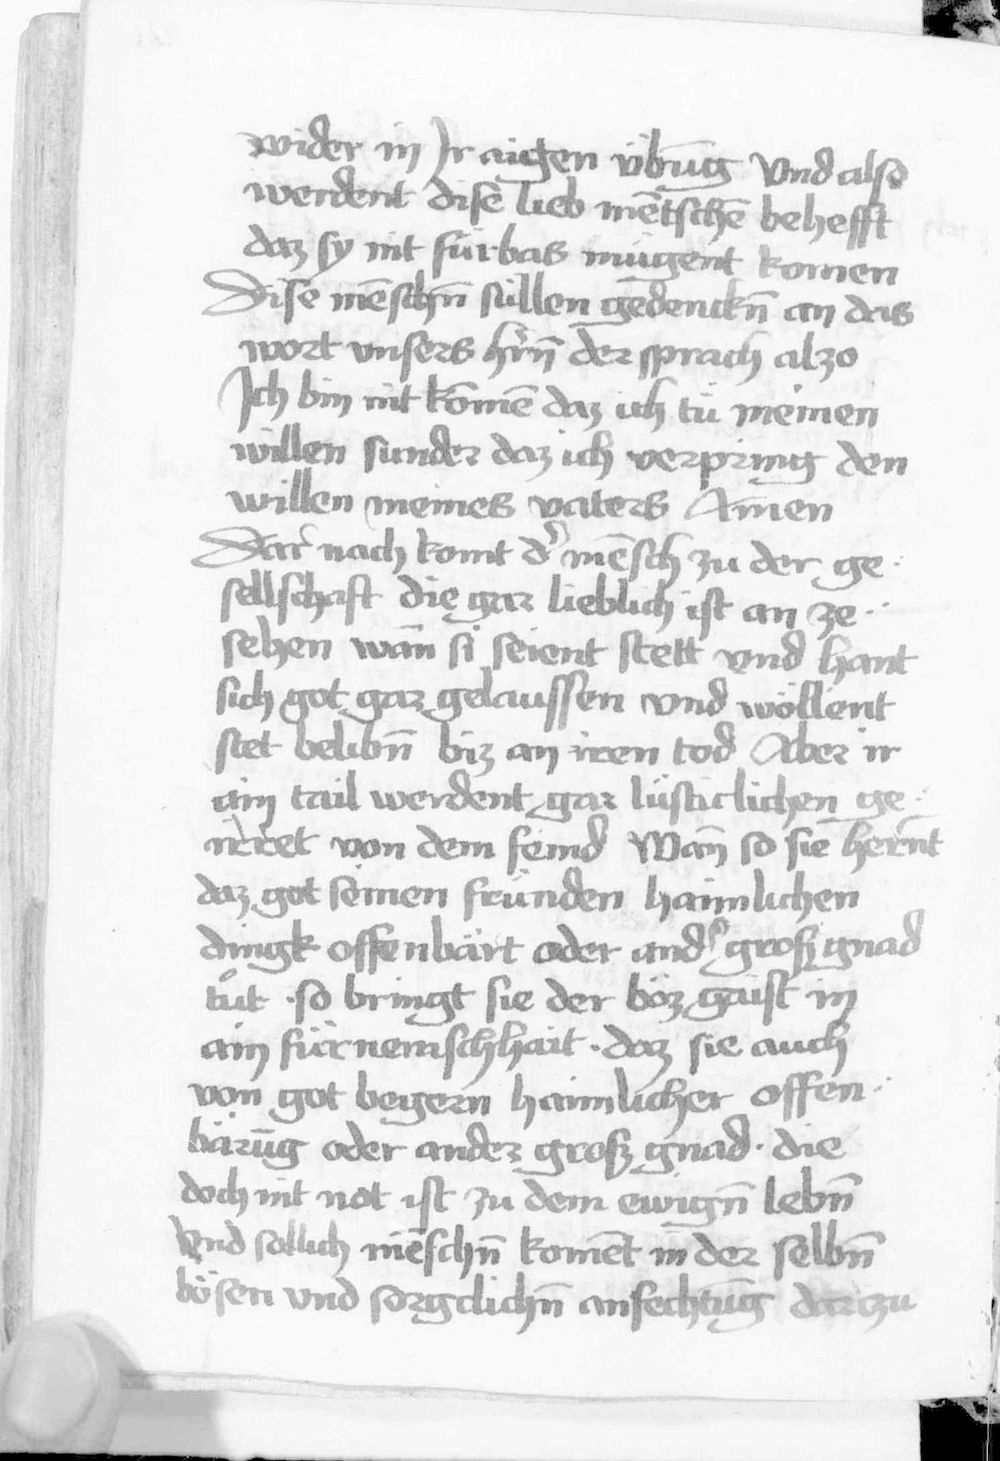 wider in Jr aigen übūg Vnd also
werdent dise lieb mētschē behefft
daz sy nit fürbas mügent komen
Dise mēschn̄ süllen gedenckn̄ an das
wort vnsers hr̄n̄ der sprach alzo
Ich bin nit kōmē daz ich tü meinen
willen sunder daz ich verpring den
willen meines vaters Amen
Dar nach komt dʾ mēsch zu der ge·
sellschaft die gar lieblich ist an ze··
sehen wan̄ si seient stett vnd hant
sich got gar gelaussen vnd wöllent
stet belibn̄ biz an iren tod Aber ir
ain tail werdent gar lüsticlichen ge·
irret von dem feind Wan̄ so sie hern̄t
daz got seinen fründen haimlichen
dingk offenbärt oder andʾ groß gnad
tůt ·so bringt sie der böz gaist in
ain fürnemschhait · daz sie auch
von got begern haimlicher offen·
bärūg oder ander groß gnad · die
doch nit not ist zu dem ewign̄ lebn̄
Vnd sollich mēschn̄ komēt in der selbn̄
bösen vnd sorgclichn̄ anfechtūg dar zu